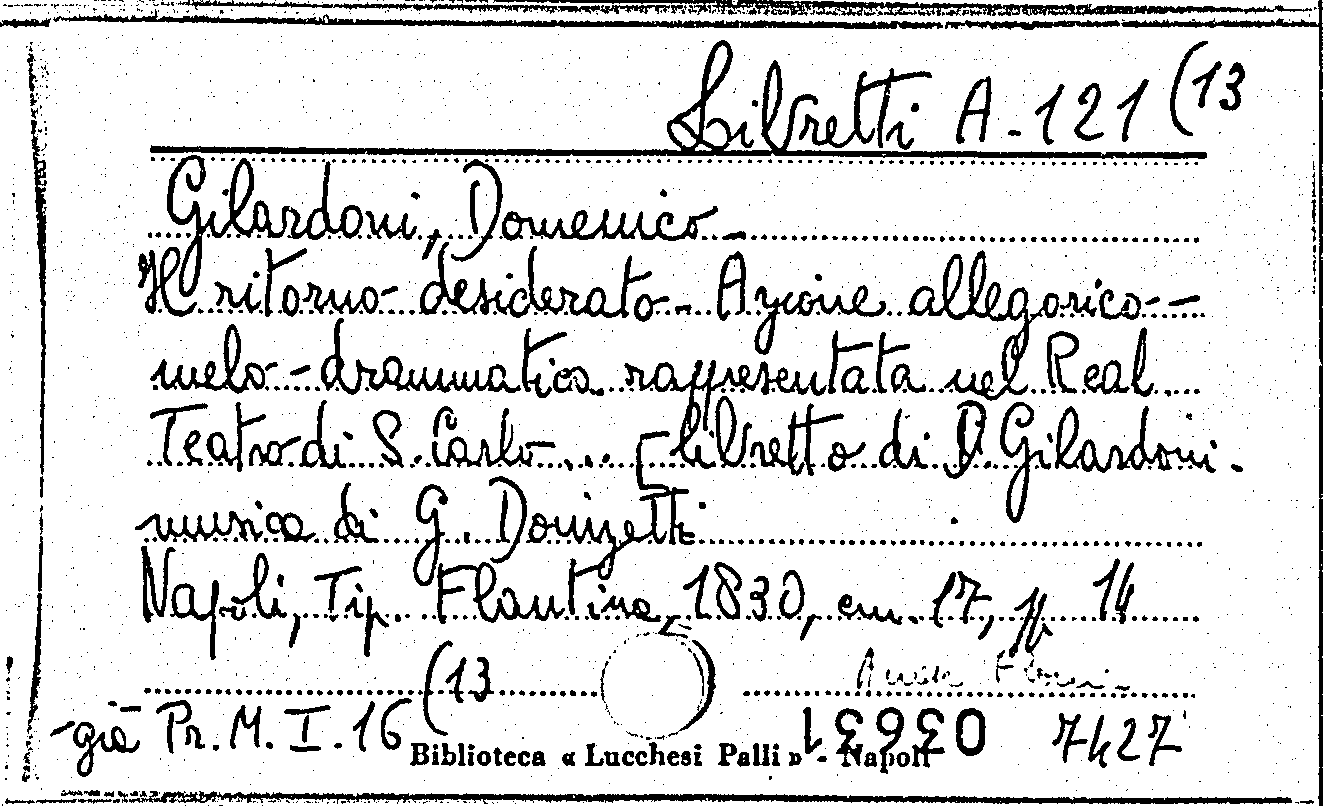 Libretti A-121 (13
Gilardoni, Domenico -
Il ritorno desiderato - Azione allegorico-
melo-drammatica rappresentata nel Real
Teatro di S. Carlo ... [libretto di D. Gilardoni.
musica di G. Donizetti
Napoli, Tip. Flautina, 1830, cm. 17, pp 14
(13
già Pr. M. I. 16
03631 7427
Biblioteca « Lucchesi Palli » - Napoli